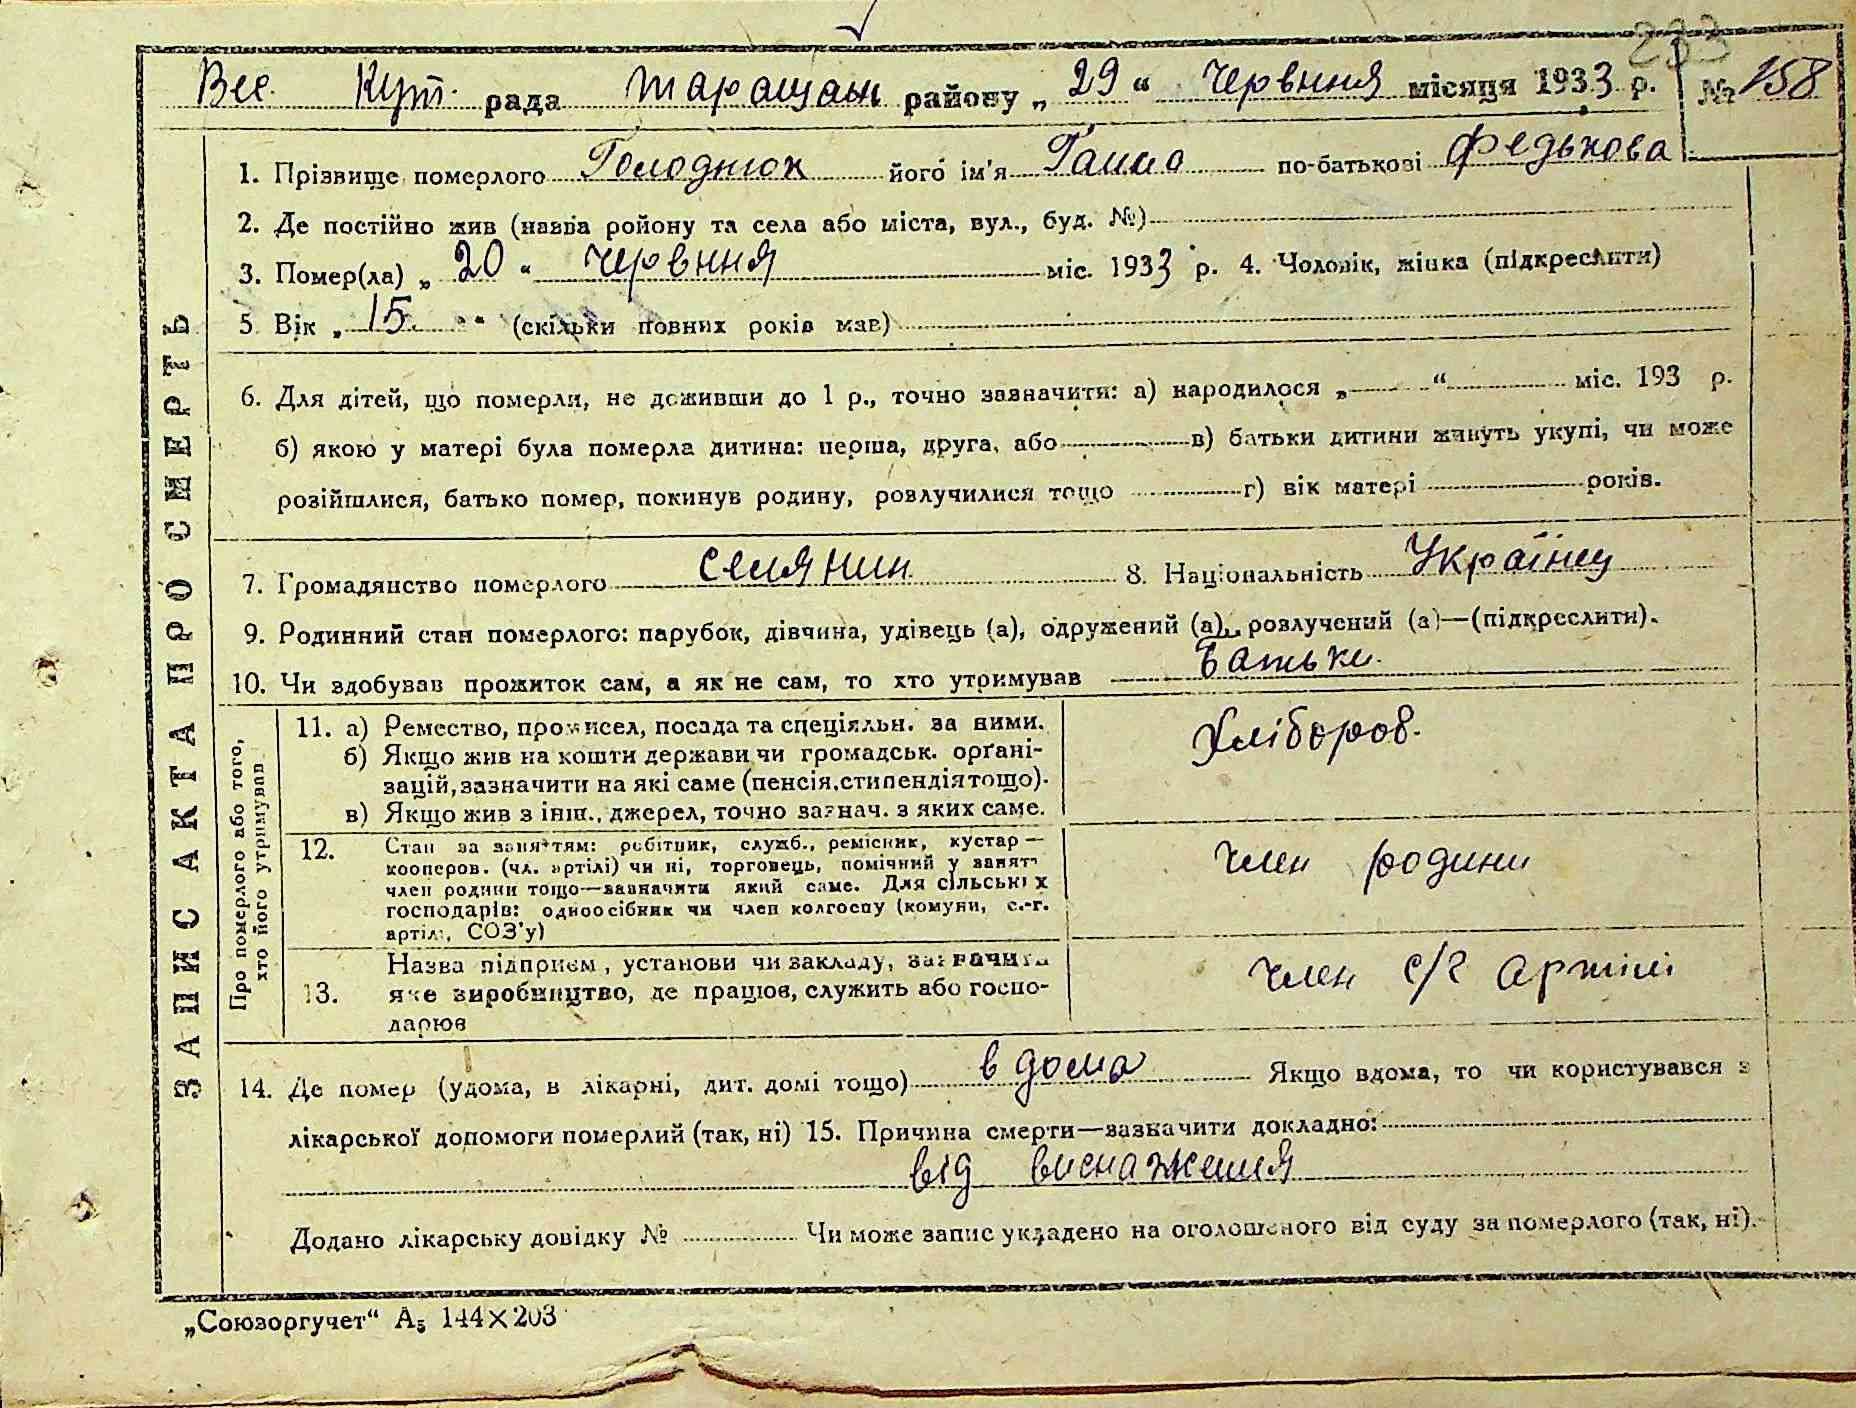 233
Вес. Кут. рада Таращан району „ 29 “ червння місяця 1933 р. № 158
1. Прізвище померлого Голоднюк його ім'я Ганна по-батькові Федькова
2. Де постійно жив (назва ройону та села або міста, вул., буд. №)
3. Помер(ла) „ 20 “ червння міс. 1933 р. 4. Чоловік, жінка (підкреслити)
5 Вік „ 15. “ (скільки повних років мав)
6. Для дітей, що померли, не доживши до 1 р., точно зазначити: а) народилося „ “ міс. 193 р.
б) якою у матері була померла дитина: перша, друга, або в) батьки дитини живуть укупі, чи може
розійшлися, батько помер, покинув родину, розлучилися тощо г) вік матері років.
7. Громадянство померлого селянин 8. Національність Українц
9. Родинний стан померлого: парубок, дівчина, удівець (а), одружений (а), розлучений (а)—(підкреслити).
10. Чи здобував прожиток сам, а як не сам, то хто утримував Батьки.
ЗАПИС АКТА ПРО СМЕРТЬ
Про померлого або того,
хто його утримував
11. а) Ремество, промисел, посада та спеціяльн. за ними.
б) Якщо жив на кошти держави чи громадськ. орґані-
зацій, зазначити на які саме (пенсія, стипендія тощо).
в) Якщо жив з інш., джерел, точно зазнач. з яких саме.
Хлібороб.
12. Стан за заняттям: робітник, служб., ремісник, кустар—
кооперов. (чл. артілі) чи ні, торговець, помічний у занятт
член родини тощо—зазначити який саме. Для сільських
господарів: одноосібник чи член колгоспу (комуни, с.-г.
артілі, СОЗ'у)
член родини
13. Назва підприєм, установи чи закладу, зазначити
яке виробництво, де працює, служить або госпо-
дарює
член с/г артілі
14. Де помер (удома, в лікарні, дит. домі тощо) в дома Якщо вдома, то чи користувався з
лікарської допомоги померлий (так, ні) 15. Причина смерти—зазначити докладно:
від виснаження
Додано лікарську довідку № Чи може запис укладено на оголошеного від суду за померлого (так, ні).
„Союзоргучет“ А5 144×203